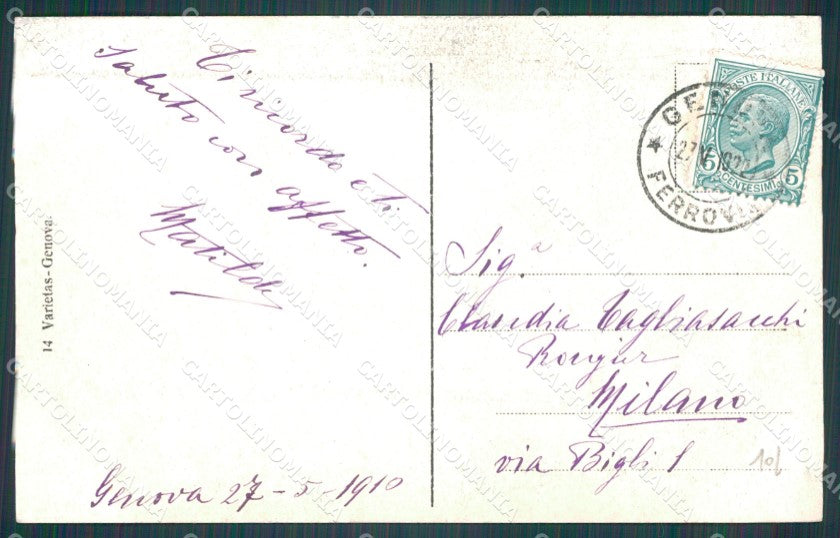 Ti ricordo e ti
saluto con affetto.
Matilde
Genova 27-5-1910
14 Varietas - Genova.
POSTE ITALIANE
CENTESIMI 5
FERROVIA
Sig.a
Claudia Tagliasacchi
Rougier
Milano
via Bigli 1
CARTOLINOMANIA